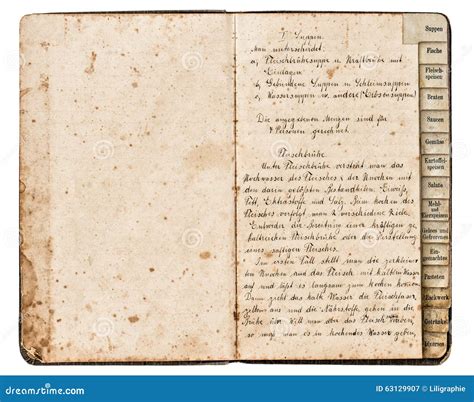 I. Suppen.
Man unterscheidet:
a, Fleischbrühsuppe u. Kraftbrühe mit
Einlagen
b, Gebundene Suppen u. Schleimsuppen
c, Wassersuppen u. andere (Erbsensuppen)
Die angegebenen Mengen sind für
Personen gerechnet.
Fleischbrühe.
Unter Fleischbrühe versteht man das
Kochwasser des Fleisches & der Knochen mit
den darin gelösten Bestandteilen: Eiweiß,
Fett, Extraktstoffe und Salz. Beim Kochen des
Fleisches verfolgt man 2 verschiedene Ziele.
Entweder die Bereitung einer kräftigen ge-
haltreichen Fleischbrühe oder Herstellung
eines saftigen Fleisches.
Im ersten Fall stellt man die zerkleiner-
ten Knochen und das Fleisch mit kaltem Wasser
auf und läßt es langsam zum kochen kommen.
Dann zieht das kalte Wasser die Fleischfaser
aus und die Nährstoffe gehen in die
Brühe über. Will man aber das Fleisch
so muß man es in kochendes Wasser geben,
Suppen
Fische
Fleisch-
speisen
Braten
Saucen
Gemüse
Kartoffel-
speisen
Salate
Mehl-
und
Eierspeisen
Gelees und
Gefrorenes
Ein-
gemachtes
Pasteten
Backwerk
Getränke
Diverses
dreamstime.com
ID 63129907 © Liligraphie